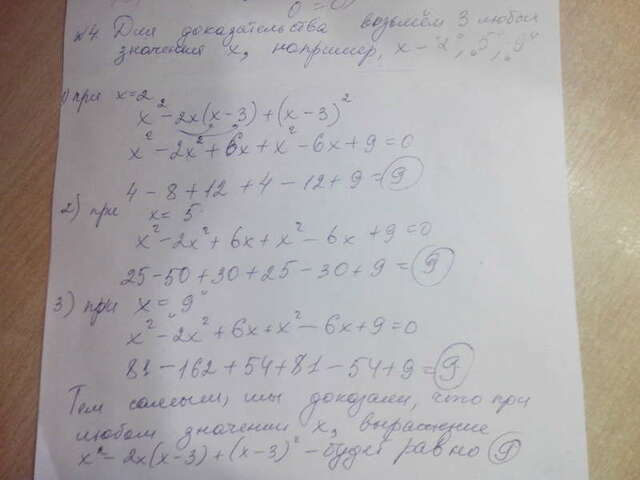 0 = 0
№4 Для доказательства возьмём 3 любых
значения x, например, x - "2", "5", "9"
1) при x=2
x² - 2x(x-3) + (x-3)²
x² - 2x² + 6x + x² - 6x + 9 = 0
4 - 8 + 12 + 4 - 12 + 9 = 9
2) при x = 5
x² - 2x² + 6x + x² - 6x + 9 = 0
25 - 50 + 30 + 25 - 30 + 9 = 9
3) при x = "9"
x² - 2x² + 6x + x² - 6x + 9 = 0
81 - 162 + 54 + 81 - 54 + 9 = 9
Тем самым, мы доказали, что при
любом значении x, выражение
x² - 2x(x-3) + (x-3)² - будет равно 9